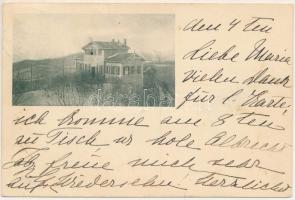 den 4ten
Liebe Maria
vielen Dank
für l. Karte,
ich komme am 8ten
zu Tisch, u hole Albrecht
ab, freue mich sehr
auf Wiedersehen! Herzlichst